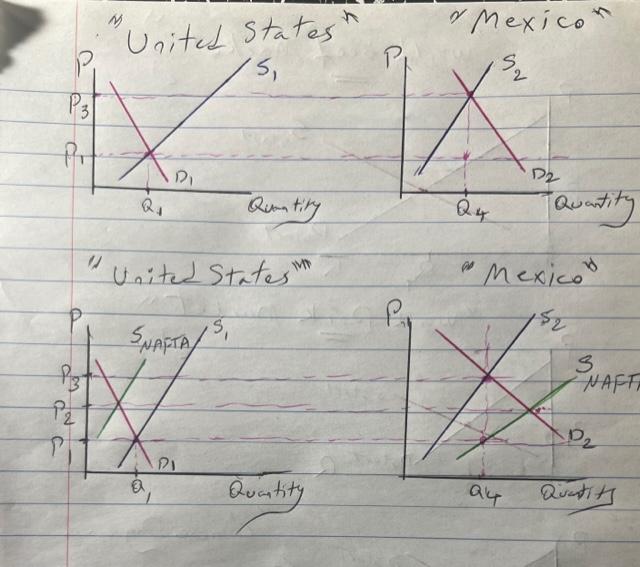 "United States"
"Mexico"
P
S₁
P₃
P₁
D₁
Q₁
Quantity
P
S₂
D₂
Q₄
Quantity
"United States"
"Mexico"
P
S NAFTA
S₁
P₃
P₂
P₁
D1
Q₁
Quantity
P
S₂
S NAFTA
D₂
Q4
Quantity